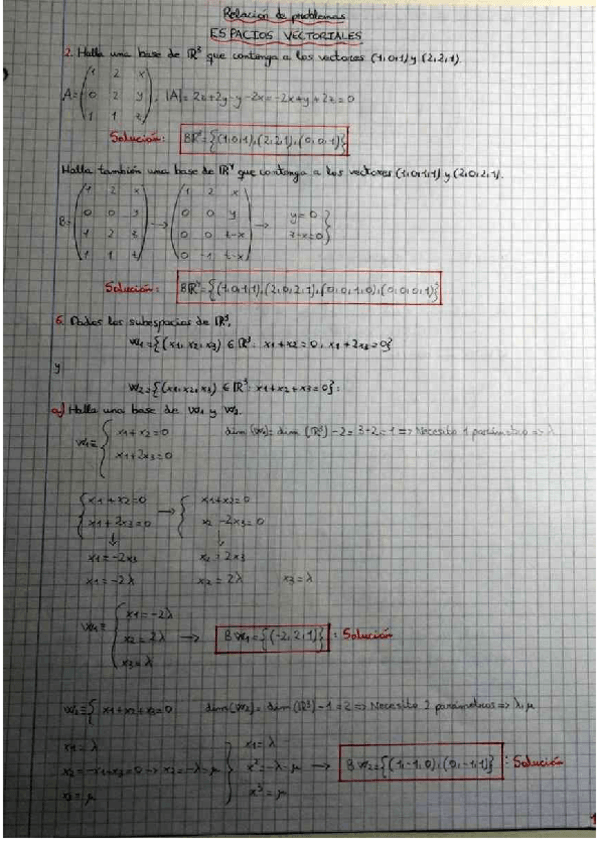 Relación de problemas
ESPACIOS VECTORIALES
2. Halla una base de ℝ³ que contenga a los vectores (1,0,1) y (2,2,1).
1 2 x
A= 0 2 y , |A| = 2z+2y-y-2x=-2x+y+2z=0
1 1 z
Solución: Bℝ³={(1,0,1),(2,2,1),(0,0,1)}
Halla también una base de ℝ⁴ que contenga a los vectores (1,0,1,1) y (2,0,2,1).
1 2 x 1 2 x
B= 0 0 y → 0 0 y → y=0
1 2 z 0 0 z-x z-x=0
1 1 t 0 -1 t-x
Solución: Bℝ⁴={(1,0,1,1),(2,0,2,1),(0,0,1,0),(0,0,0,1)}
6. Dados los subespacios de ℝ³,
W1={(x1,x2,x3) ∈ ℝ³: x1+x2=0, x1+2x3=0}
y
W2={(x1,x2,x3) ∈ ℝ³: x1+x2+x3=0}:
a) Halla una base de W1 y W2.
W1≡ { x1+x2=0 dim (W1)= dim (ℝ³)-2=3-2=1 => Necesito 1 parámetro => λ
x1+2x3=0
x1+x2=0 → x1+x2=0
x1+2x3=0 x2-2x3=0
↓ ↓
x1=-2x3 x2=2x3
x1=-2λ x2=2λ x3=λ
x1=-2λ
W1≡ x2=2λ → B W1={(-2,2,1)} : Solución
x3=λ
W2≡{ x1+x2+x3=0 dim(W2)=dim(ℝ³)-1=2 => Necesito 2 parámetros => λ,μ
x1=λ x1=λ
x2=-x1+x3=0 → x2=-λ-μ x²=-λ-μ → B W2={(1,-1,0),(0,-1,1)} : Solución
x3=μ x³=μ
1